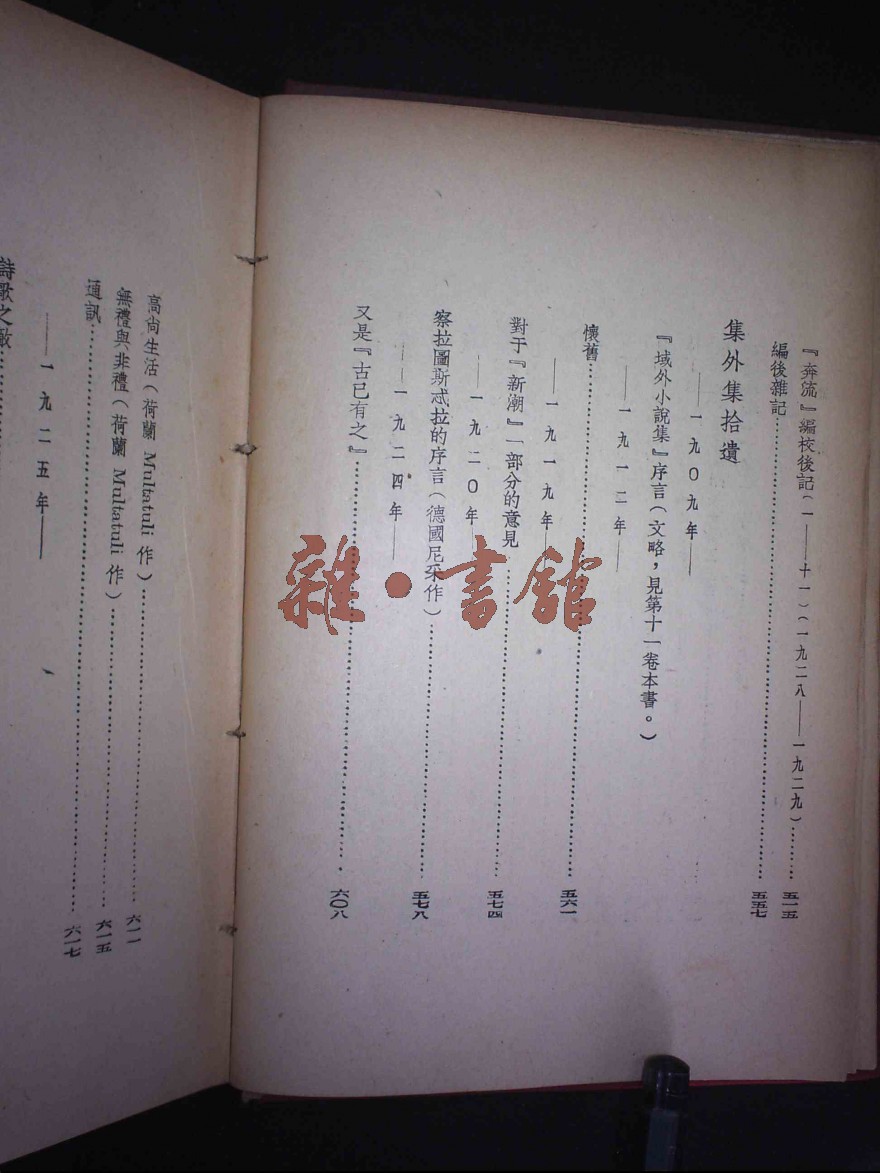 『奔流』編校後記(一——十一)(一九二八——一九二九)………五一五
編後雜記………五五七
集外集拾遺
——一九〇九年——
『域外小說集』序言(文略,見第十一卷本書。)
——一九一二年——
懷舊………五六一
——一九一九年——
對于『新潮』一部分的意見………五七四
——一九二〇年——
察拉圖斯忒拉的序言(德國尼采作)………五七八
——一九二四年——
又是『古已有之』………六〇八
高尚生活(荷蘭 Multatuli 作)………六一一
無禮與非禮(荷蘭 Multatuli 作)………六一五
通訊………六一七
——一九二五年——
詩歌之敵………
雜·書館